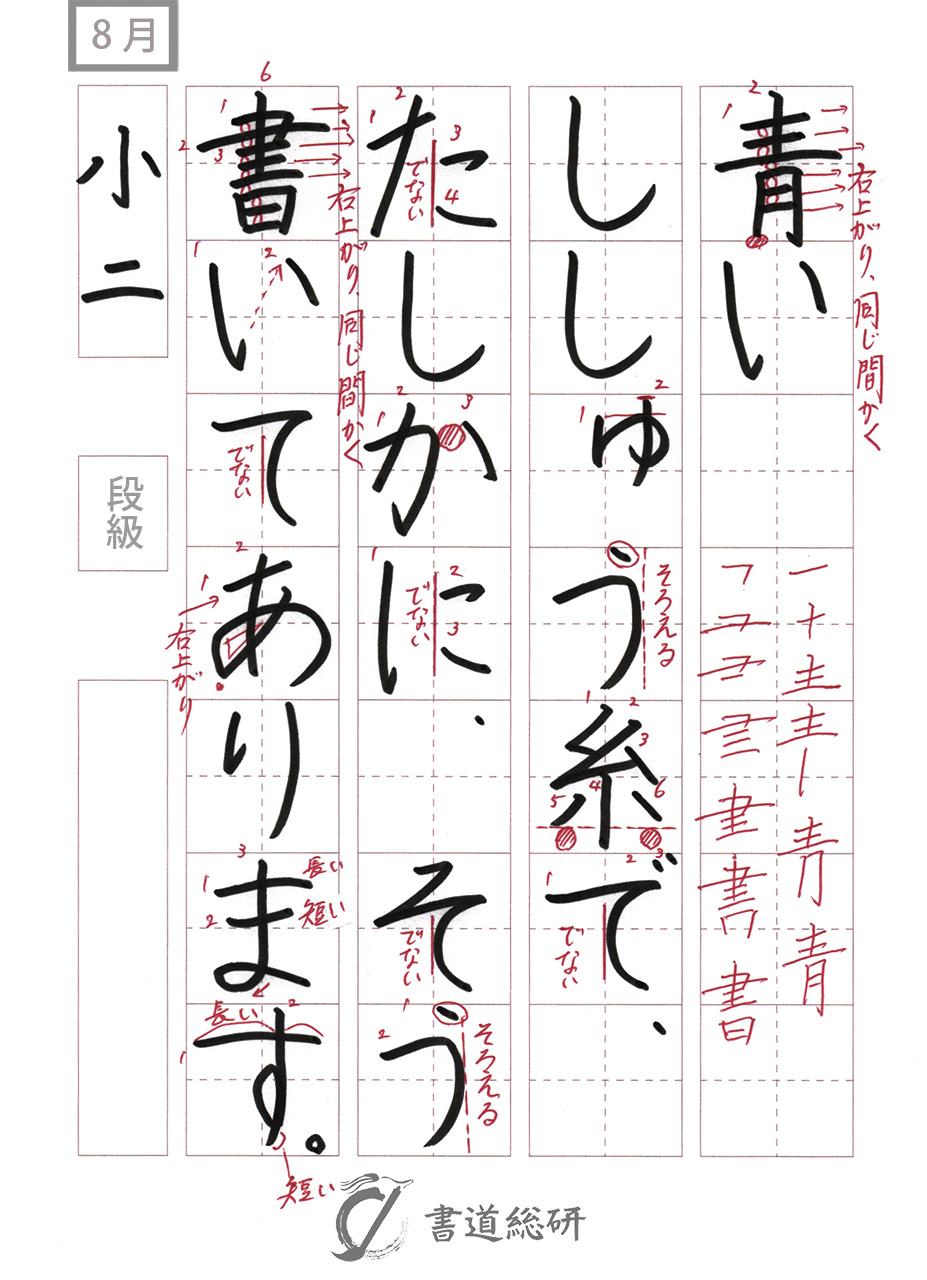 8月
青い
右上がり、同じ間かく
一 十 主 青 青
書 書
ししゅう糸で、
そろえる
でない
たしかに、そう
でない
でない
でない
そろえる
書いてあります。
右上がり、同じ間かく
でない
右上がり
長い
短い
長い
短い
小二
段級
書道総研